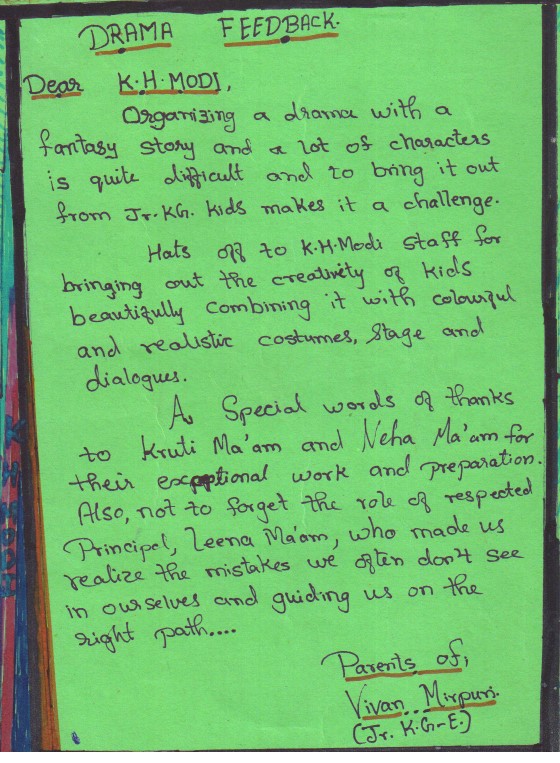 DRAMA FEEDBACK.
Dear K.H.MODI,
Organizing a drama with a
fantasy story and a lot of characters
is quite difficult and to bring it out
from Jr.KG. kids makes it a challenge.
Hats off to K.H.Modi staff for
bringing out the creativity of kids
beautifully combining it with colourful
and realistic costumes, stage and
dialogues.
A Special words of thanks
to Kruti Ma'am and Neha Ma'am for
their exceptional work and preparation.
Also, not to forget the role of respected
Principal, Leena Ma'am, who made us
realize the mistakes we often don't see
in ourselves and guiding us on the
right path....
Parents of,
Vivan Mirpuri.
(Jr. K.G-E.)